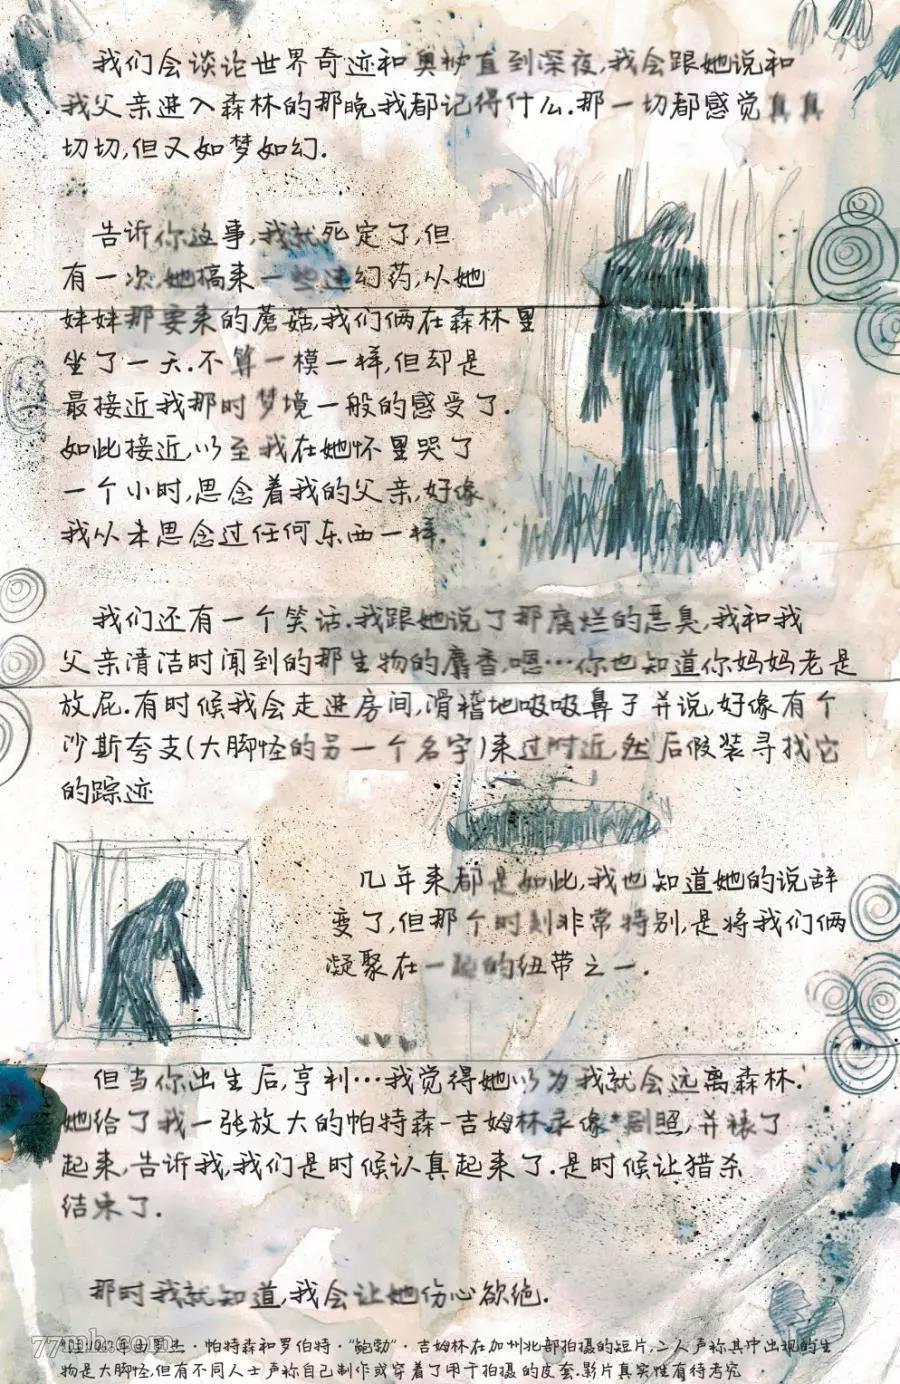 我们会谈论世界奇迹和奥妙直到深夜,我会跟她说和
我父亲进入森林的那晚我都记得什么.那一切都感觉真真
切切,但又如梦如幻.
告诉你这事,我就死定了,但
有一次,她搞来一些迷幻药,从她
妹妹那要来的蘑菇,我们俩在森林里
坐了一天.不算一模一样,但却是
最接近我那时梦境一般的感受了.
如此接近,以至我在她怀里哭了
一个小时,思念着我的父亲,好像
我从未思念过任何东西一样.
我们还有一个笑话.我跟她说了那腐烂的恶臭,我和我
父亲清洁时闻到的那生物的麝香,嗯…你也知道你妈妈老是
放屁.有时候我会走进房间,滑稽地吸吸鼻子并说,好像有个
沙斯夸支(大脚怪的另一个名字)来过附近,然后假装寻找它
的踪迹
几年来都是如此,我也知道她的说辞
变了,但那个时刻非常特别,是将我们俩
凝聚在一起的纽带之一.
但当你出生后,亨利…我觉得她以为我就会远离森林.
她给了我一张放大的帕特森-吉姆林录像*剧照,并裱了
起来,告诉我,我们是时候认真起来了.是时候让猎杀
结束了.
那时我就知道,我会让她伤心欲绝.
·帕特森和罗伯特·"鲍勃"·吉姆林在加州北部拍摄的短片,二人声称其中出现的生
物是大脚怪,但有不同人士声称自己制作或穿着了用于拍摄的皮套.影片真实性有待考究.
77mh.com